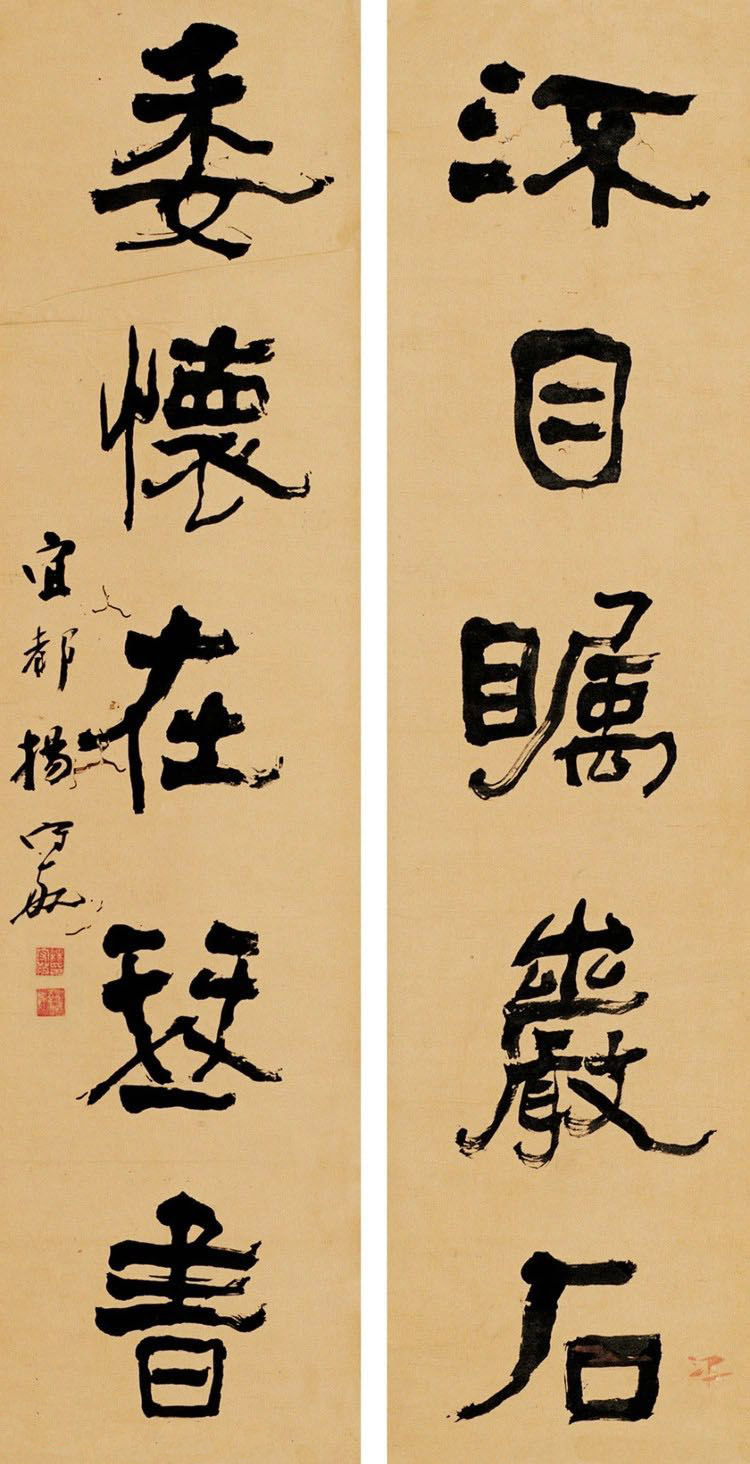 目矚巖石
委懷在琴書
宜都楊守敬